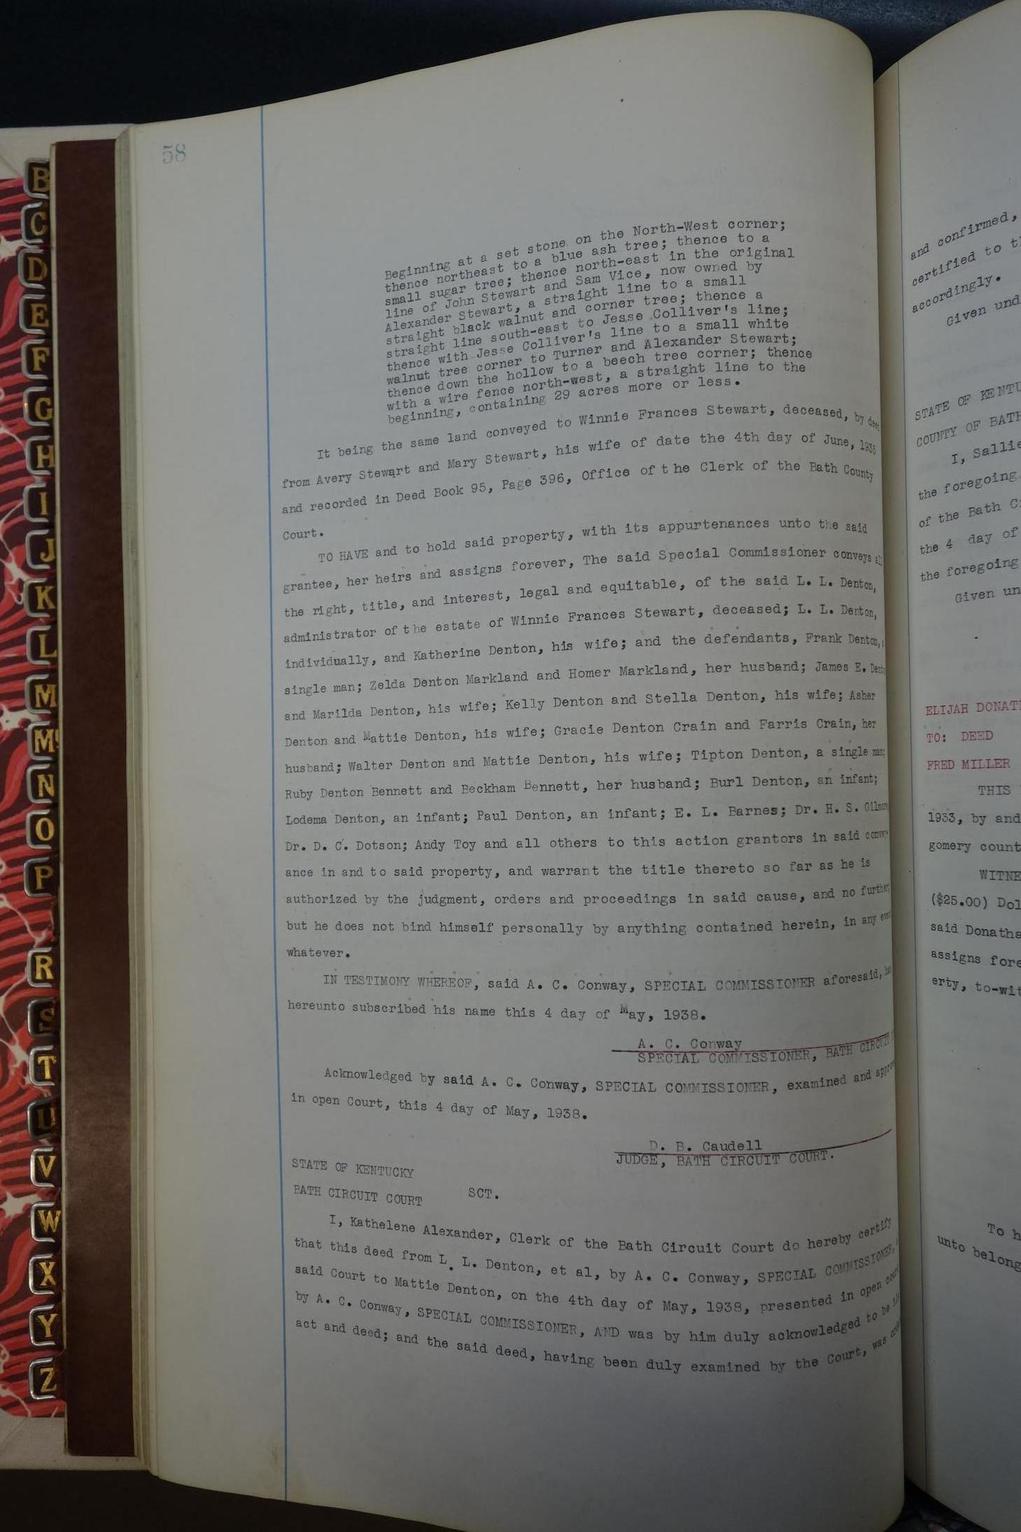 58
B
C
D
E
F
G
H
I
J
K
L
M
Mc
N
O
P
R
S
T
U
V
W
X
Y
Z
Beginning at a set stone on the North-West corner;
thence northeast to a blue ash tree; thence to a
small sugar tree; thence north-east in the original
line of John Stewart and Sam Vice, now owned by
Alexander Stewart, a straight line to a small
straight black walnut and corner tree; thence a
straight line south-east to Jesse Colliver's line;
thence with Jesse Colliver's line to a small white
walnut tree corner to Turner and Alexander Stewart;
thence down the hollow to a beech tree corner; thence
with a wire fence north-west, a straight line to the
beginning, containing 29 acres more or less.
It being the same land conveyed to Winnie Frances Stewart, deceased, by deed
from Avery Stewart and Mary Stewart, his wife of date the 4th day of June,
and recorded in Deed Book 95, Page 396, Office of the Clerk of the Bath County
Court.
TO HAVE and to hold said property, with its appurtenances unto the said
grantee, her heirs and assigns forever, The said Special Commissioner conveys all
the right, title, and interest, legal and equitable, of the said L. L. Denton,
administrator of the estate of Winnie Frances Stewart, deceased; L. L. Denton,
individually, and Katherine Denton, his wife; and the defendants, Frank Denton, a
single man; Zelda Denton Markland and Homer Markland, her husband; James E. Denton
and Marilda Denton, his wife; Kelly Denton and Stella Denton, his wife; Asher
Denton and Mattie Denton, his wife; Gracie Denton Crain and Farris Crain, her
husband; Walter Denton and Mattie Denton, his wife; Tipton Denton, a single man;
Ruby Denton Bennett and Beckham Bennett, her husband; Burl Denton, an infant;
Lodema Denton, an infant; Paul Denton, an infant; E. L. Barnes; Dr. H. S. Gilmore
Dr. D. C. Dotson; Andy Toy and all others to this action grantors in said convey-
ance in and to said property, and warrant the title thereto so far as he is
authorized by the judgment, orders and proceedings in said cause, and no further,
but he does not bind himself personally by anything contained herein, in any event
whatever.
IN TESTIMONY WHEREOF, said A. C. Conway, SPECIAL COMMISSIONER aforesaid, has
hereunto subscribed his name this 4 day of May, 1938.
A. C. Conway
SPECIAL COMMISSIONER, BATH CIRCUIT
Acknowledged by said A. C. Conway, SPECIAL COMMISSIONER, examined and approved
in open Court, this 4 day of May, 1938.
D. B. Caudell
JUDGE, BATH CIRCUIT COURT.
STATE OF KENTUCKY
BATH CIRCUIT COURT SCT.
I, Kathelene Alexander, Clerk of the Bath Circuit Court do hereby certify
that this deed from L. L. Denton, et al, by A. C. Conway, SPECIAL COMMISSIONER,
said Court to Mattie Denton, on the 4th day of May, 1938, presented in open court
by A. C. Conway, SPECIAL COMMISSIONER, AND was by him duly acknowledged to be his
act and deed; and the said deed, having been duly examined by the Court, was
and confirmed,
certified to
accordingly.
Given und
STATE OF KENTU
COUNTY OF BATH
I, Sallie
the foregoing
of the Bath C
the 4 day of
the foregoing
Given un
ELIJAH DONATH
TO: DEED
FRED MILLER
THIS
1933, by and
gomery count
WITNE
($25.00) Dol
said Donatha
assigns fore
erty, to-wit
To h
unto belong